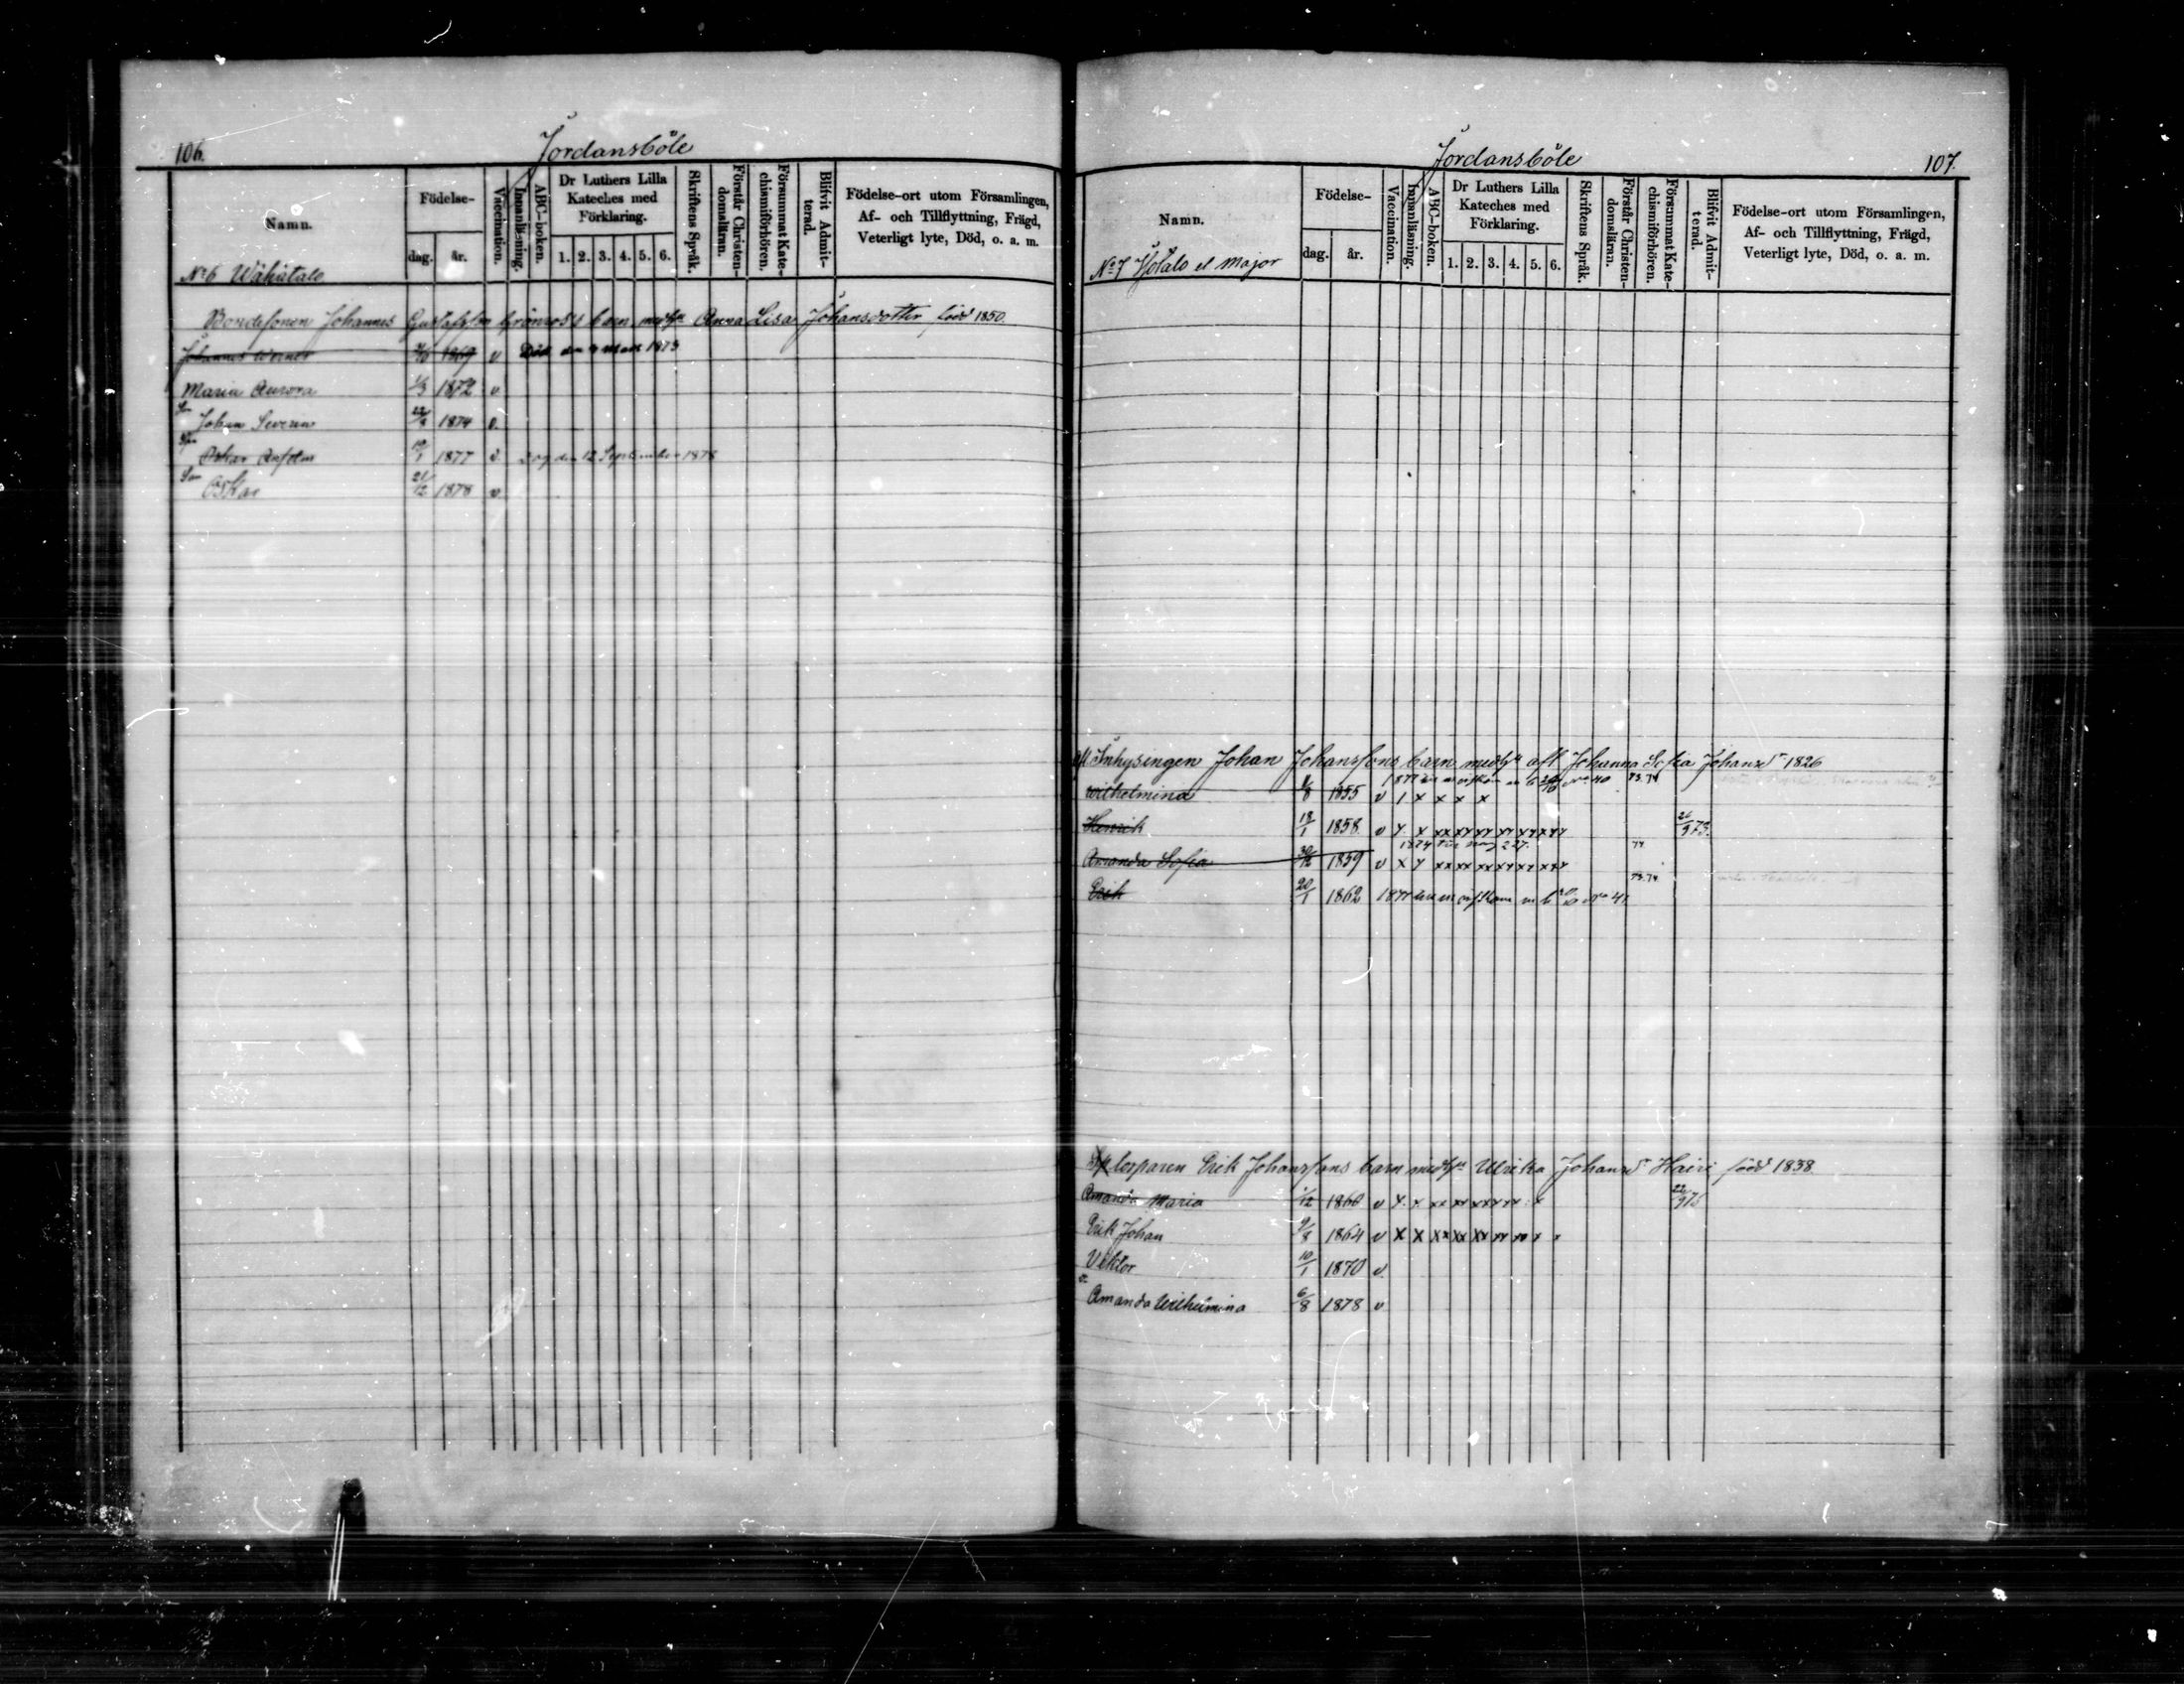 106.
Jordansböle
Namn.
Födelse-
dag. år.
Vaccination.
Innanläsning.
ABC-boken.
Dr Luthers Lilla Kateches med Förklaring.
1. 2. 3. 4. 5. 6.
Skriftens Språk.
Förstår Christendomsläran.
Försummat Katechismiförhören.
Blifvit Admitterad.
Födelse-ort utom Församlingen, Af- och Tillflyttning, Frägd, Veterligt lyte, Död, o. a. m.
No 6 Wähätalo
Bondesonen Johannes Gustafsson Grönroos's barn med Anna Lisa Johansdotter född 1850.
Johannes Werner 1869 v Död den 1873
Maria Aurora 1872 v
Son Johan Severin 22/ 1874 v.
Oskar Anselm 19/1 1877 v. Dog den 12 September 1878
Son Oskar 21/12 1878 v
Jordansböle
107.
Namn.
Födelse-
dag. år.
Vaccination.
Innanläsning.
ABC-boken.
Dr Luthers Lilla Kateches med Förklaring.
1. 2. 3. 4. 5. 6.
Skriftens Språk.
Förstår Christendomsläran.
Försummat Katechismiförhören.
Blifvit Admitterad.
Födelse-ort utom Församlingen, Af- och Tillflyttning, Frägd, Veterligt lyte, Död, o. a. m.
No 7 el Major
Inhysingen Johan Johanssons barn med afl Johanna Sofia Johansdr 1826
Wilhelmina /8 1855 v / x x x x 73.74
Henrik 18/1 1858 v x x xx xx xx xx xx xxx
Amanda Sofia 30/12 1859 v x x xx xx xx xx xx xxx 74
Erik 20/1 1862 73.74
Erik Johanssons barn med Ulrika Johansdr Hairi född 1838
Amanda Maria 1/12 1860 v x. x xx xx xx xx x
Erik Johan 9/8 1864 v x x xx xx xx xx x x x
Viktor 10/1 1870 v.
Amanda Wilhelmina 6/8 1878 v